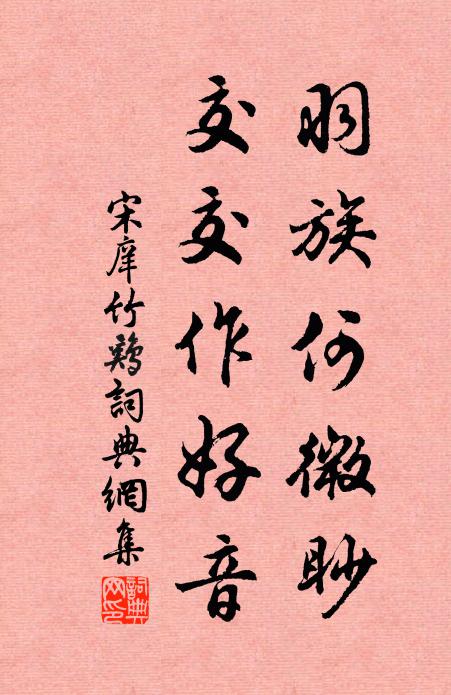 羽族何微眇
交交作好音
宋庠竹鷄詞典網集
詞典网印